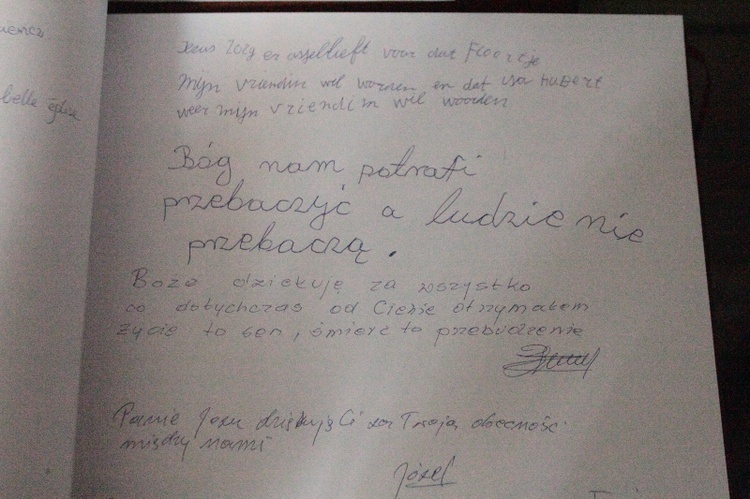 belle église
Jesus Zorg er asseblieft voor dat Floortje
Mijn vrandin wil worden en dat Isa Hubert
weer mijn vriendin wil woorden
Bóg nam potrafi
przebaczyć a ludzie nie
przebaczą.
Boże dziękuję za wszystko
co dotychczas od Ciebie otrzymałem
życie to sen, śmierć to przebudzenie
Panie Jezu dziękuję Ci za Twoją obecność
między nami
Józef